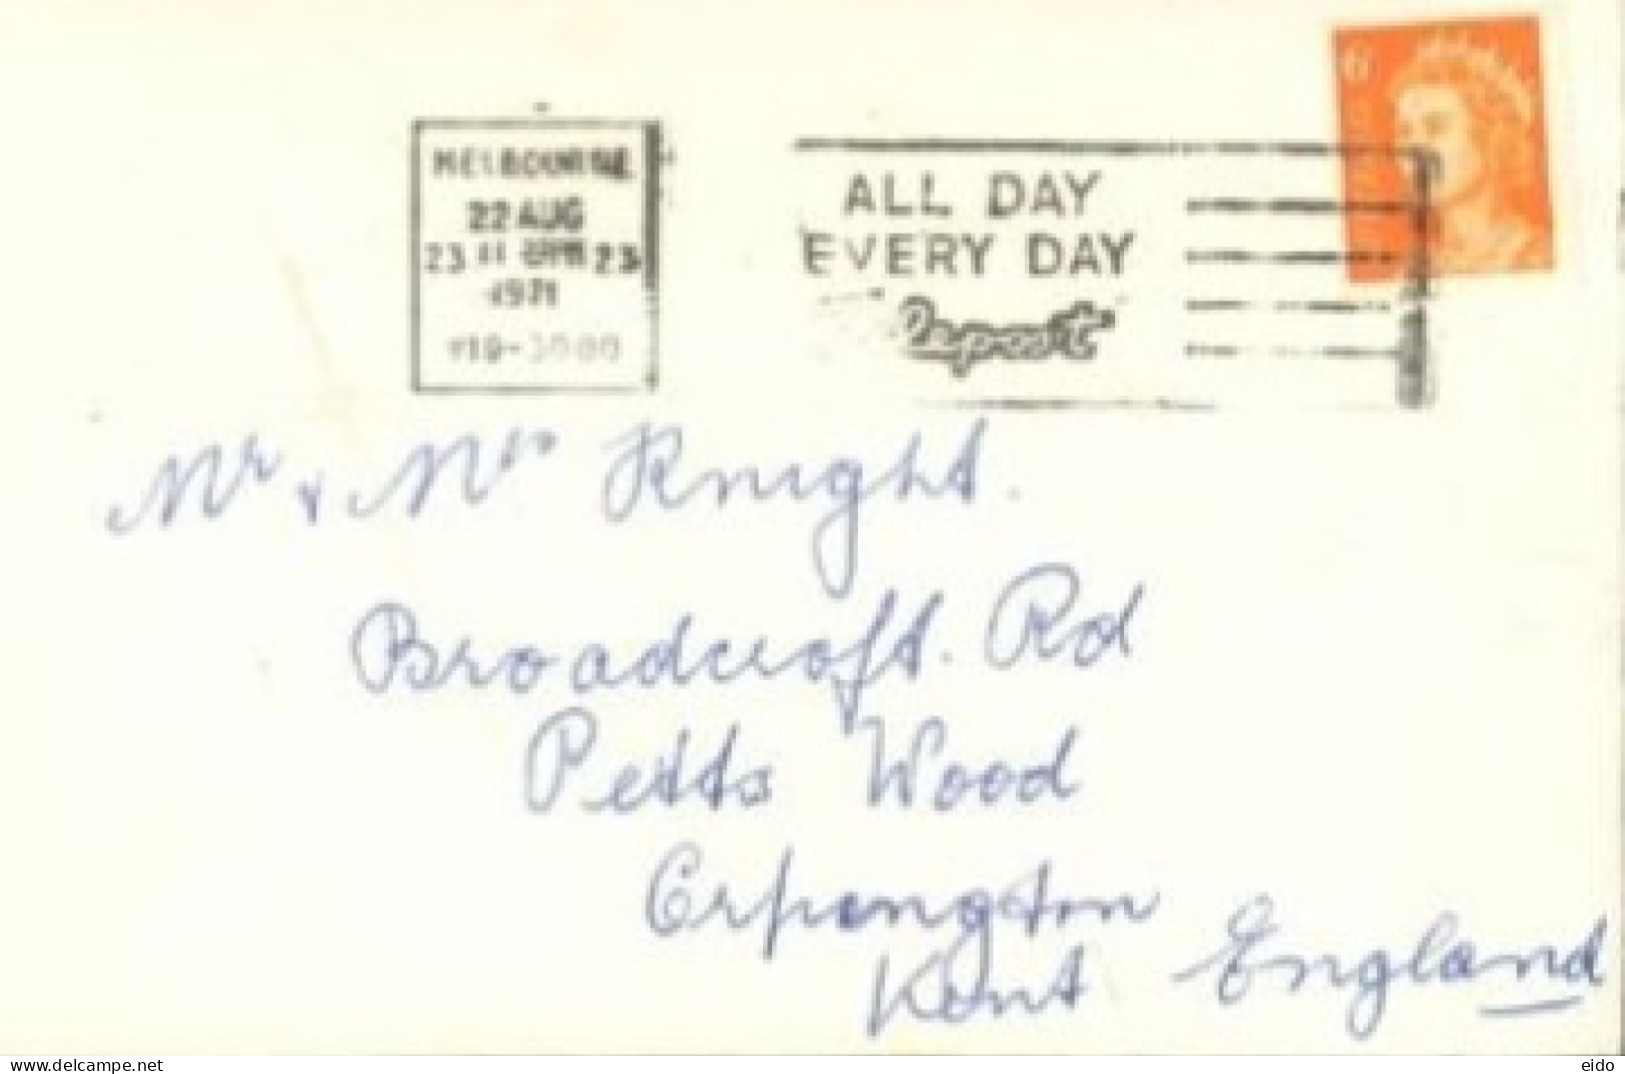 6c
MELBOURNE
22 AUG
23 11 23
1971
VIC-3000
ALL DAY
EVERY DAY
Mr & Mrs Knight.
Broadcroft. Rd
Petts Wood
Orpington
Kent England
delcampe.net
eido